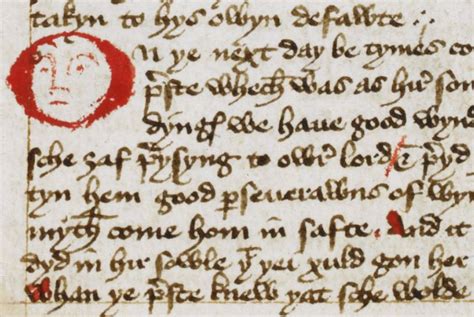 takyn to hys owyn defawte ∴
On ye next day be tymes co
pʳste whech was as hir son
dyngꝭ we haue good wynd
sche ȝaf pʳysyng to owr lord & pʳyd
tyn hem good ꝑseuerawns of wyn
myth come hom in safte. And it
dyd in hir sowle yᵗ yei xuld gon her
whan ye pʳste knew yat sche wolde